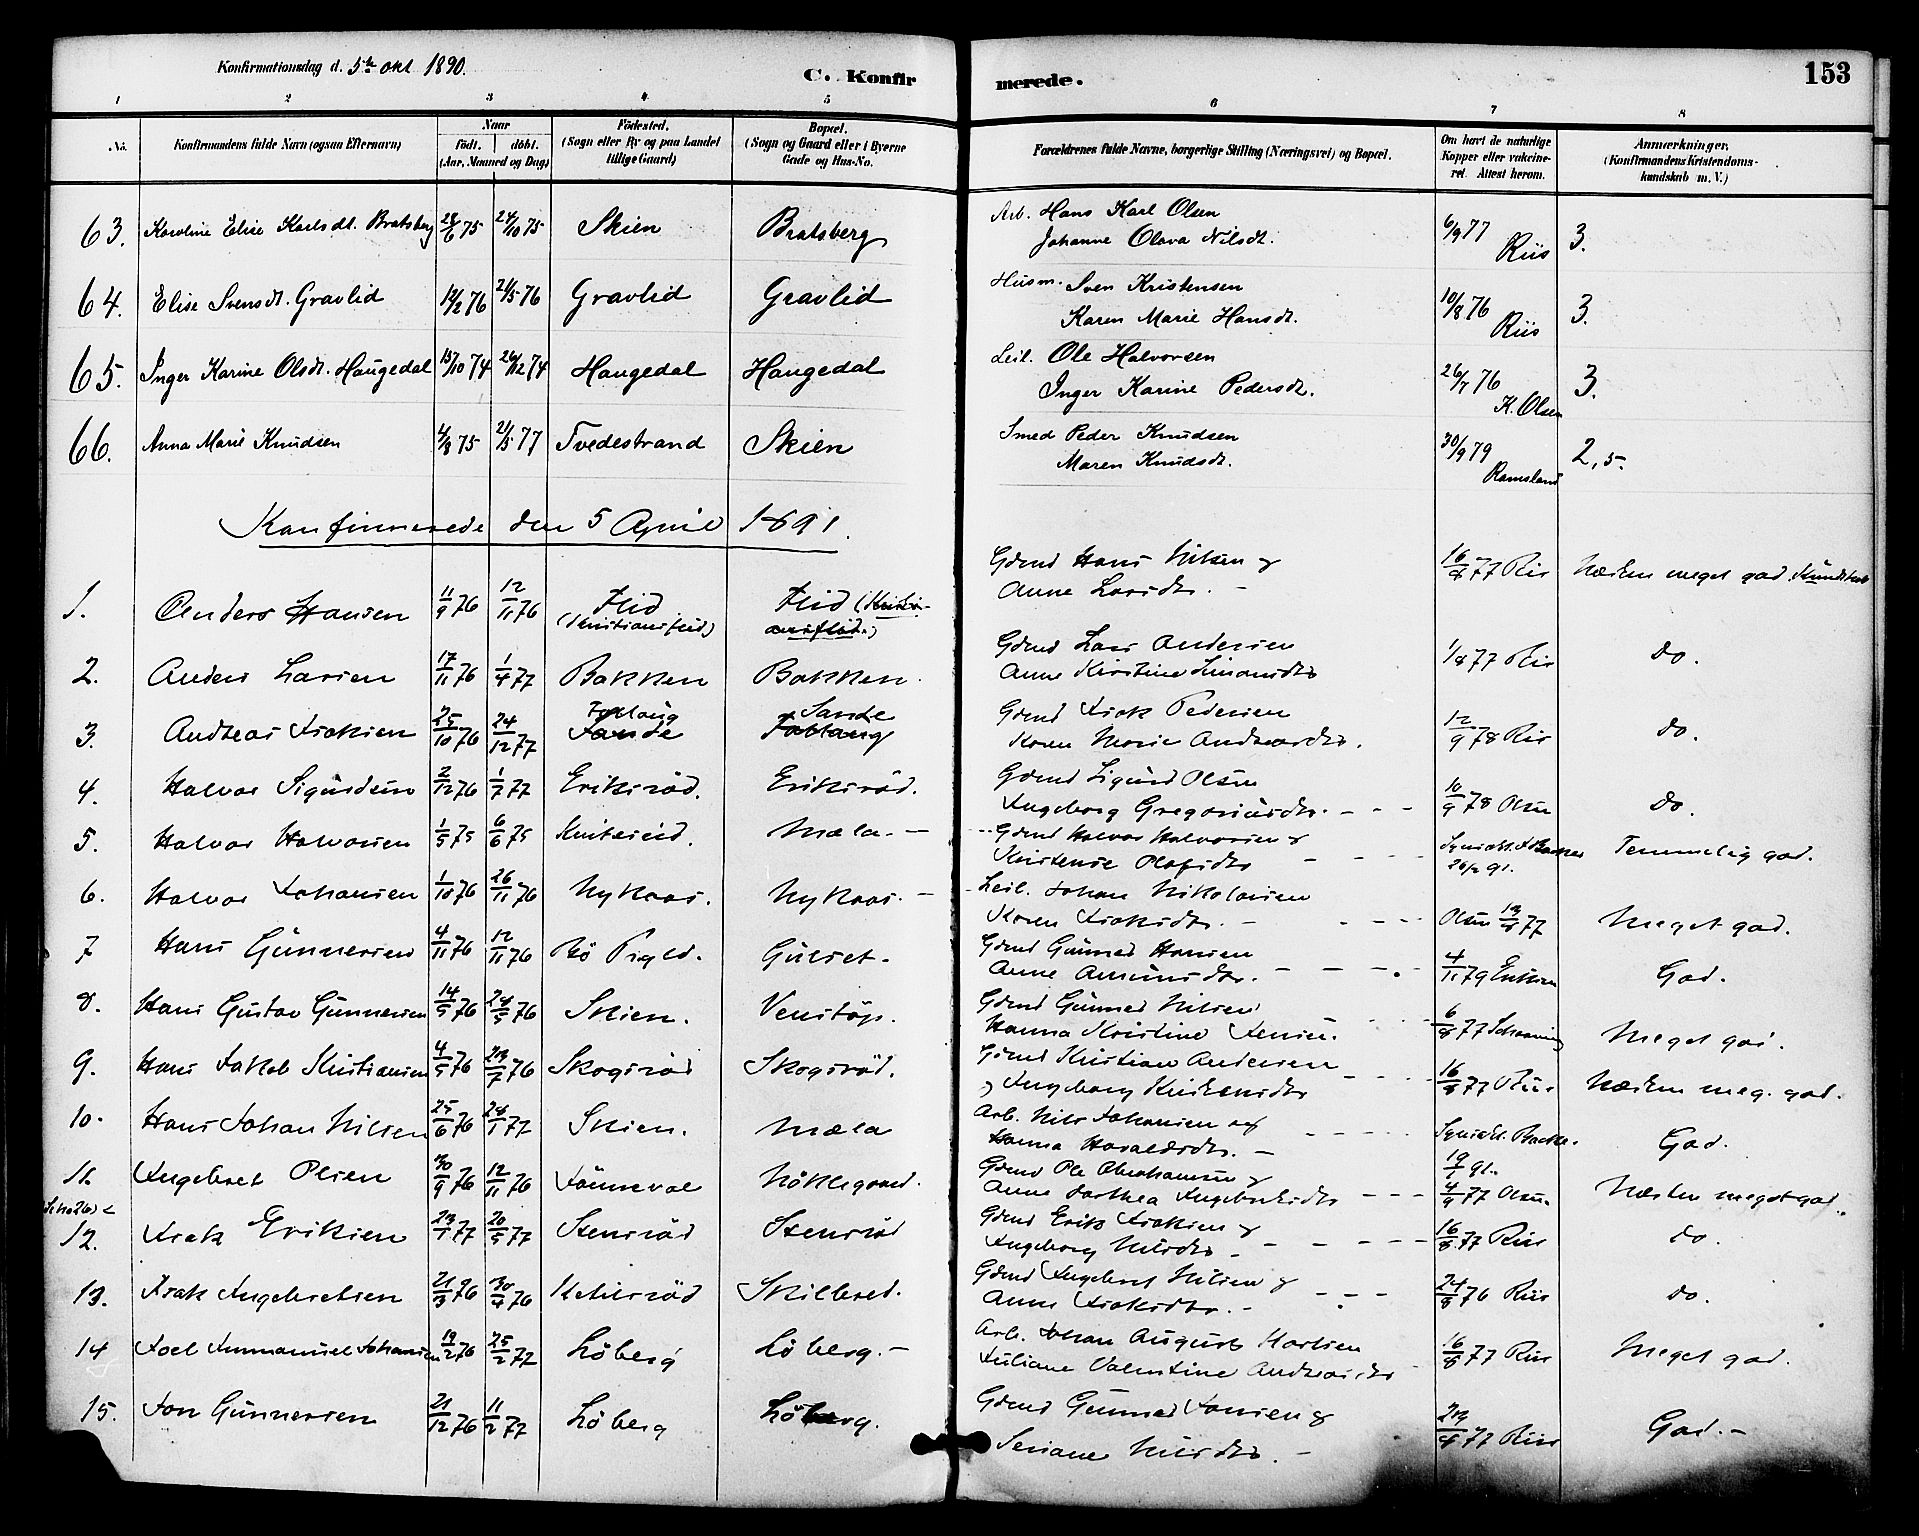 Konfirmationsdag d. 5te okt 1890.
C. Konfirmerede.
153
1 2 3 4 5 6 7 8
No. Konfirmandens fulde Navn (ogsaa Efternavn) Naar født. døbt. (Aar, Maaned og Dag) Fødested. (Sogn eller By og paa Landet tillige Gaard) Bopæl. (Sogn og Gaard eller i Byerne Gade og Hus-No. Forældrenes fulde Navne, borgerlige Stilling (Næringsvei) og Bopæl. Om havt de naturlige Kopper eller vakcineret. Attest herom. Anmærkninger. (Konfirmandens Kristendomskundskab m. V.)
63. Karoline Elise Karlsdt. Bratsberg 28/6 75 24/10 75 Skien Bratsberg Arb. Hans Karl Olsen 6/9 77 Riis 3.
Johanne Olava Nilsdt.
64. Elise Svensdt. Gravlid 12/2 76 21/5 76 Gravlid Gravlid Husm. Sven Kristensen 10/8 76 Riis 3.
Karen Marie Hansdt.
65. Inger Karine Olsdt. Haugedal 15/10 74 26/12 74 Haugedal Haugedal Leil. Ole Halvorsen 26/7 76 K. Olsen 3.
Inger Karine Pedersdt.
66. Anna Marie Knudsen 4/8 75 21/5 77 Tvedestrand Skien Smed Peder Knudsen 30/9 79 Ramsland 2,5.
Maren Knudsdt.
Konfirmerede den 5 April 1891.
1. Anders Hansen 11/9 76 12/11 76 Flid Flid Gdmd Hans Nilsen & 16/8 77 Riis Næsten meget god Kundskab
Anne Larsdtr.
2. Anders Larsen 17/11 76 1/4 77 Bakken Bakken. Gdmd Lars Andersen 1/8 77 Riis do.
Anne Kirstine Simonsdtr
3. Andreas Isaksen 25/10 76 24/12 77 Sande Gdmd Isak Pedersen 12/9 78 Riis do.
Karen Marie Andreasdtr.
4. Halvor Sigurdsen 2/12 76 1/7 77 Eriksrød. Eriksrød. Gdmd Sigurd Olsen 10/9 78 Olsen do.
Ingeborg Gregoriusdtr.
5. Halvor Halvorsen 1/5 75 6/6 75 Mæla. Gdmd Halvor Halvorsen & 26/2 91. Temmelig god.
Kirstense Olafsdtr
6. Halvor Johansen 1/10 76 26/11 76 Nykaas. Nykaas. Leil. Johan Nikolaisen Olsen 77 Meget god.
Karen Isaksdtr.
7 Hans Gunnersen 4/11 76 12/11 76 Bø Gulset. Gdmd Gunner Hansen 4/11 79 Eriksen God.
Anne Amundsdtr.
8. Hans Gustav Gunnersen 14/5 76 24/5 76 Skien. Venstøp. Gdmd Gunner Nilsen 6/8 77 Schaaning Meget god.
Hanna Kristine Jensen.
9. Hans Jakob Kristiansen 4/5 76 23/7 76 Skogsrød Skogsrød. Gdmd Kristian Andersen 16/8 77 Riis Næsten meg. god.
Ingeborg Kristensdtr
10. Hans Johan Nilsen 25/6 76 28/1 77 Skien. Mæla Arb. Nils Johansen og Synsatt. Backe. God.
Hanna Haraldsdtr. 19/1 91.
11. Ingebret Olsen 30/9 76 12/11 76 Jønnevol Gdmd Ole Abrahamsen & 4/9 77 Olsen. Næsten meget god.
Anne Dorthea Ingebretsdtr
12. Isak Eriksen 23/1 77 20/5 77 Stensrød Stensrød Gdmd Erik Isaksen & 16/8 77 Riis do.
Ingeborg Nilsdtr
13. Isak Ingebretsen 21/3 76 30/4 76 Ketilsrød Skilbred. Gdmd Ingebret Nilsen & 24/8 76 Riis do.
Anne Isaksdtr.
14 Joel Immanuel Johansen 19/2 76 25/2 77 Løberg Løberg. Arb. Johan August Karlsen 16/8 77 Riis Meget god.
Juliane Valentine Andreasdtr
15. Jon Gunnersen 21/12 76 11/2 77 Løberg Løberg. Gdmd Gunner Jonsen & 77 Riis God.
Seriane Nilsdtr.